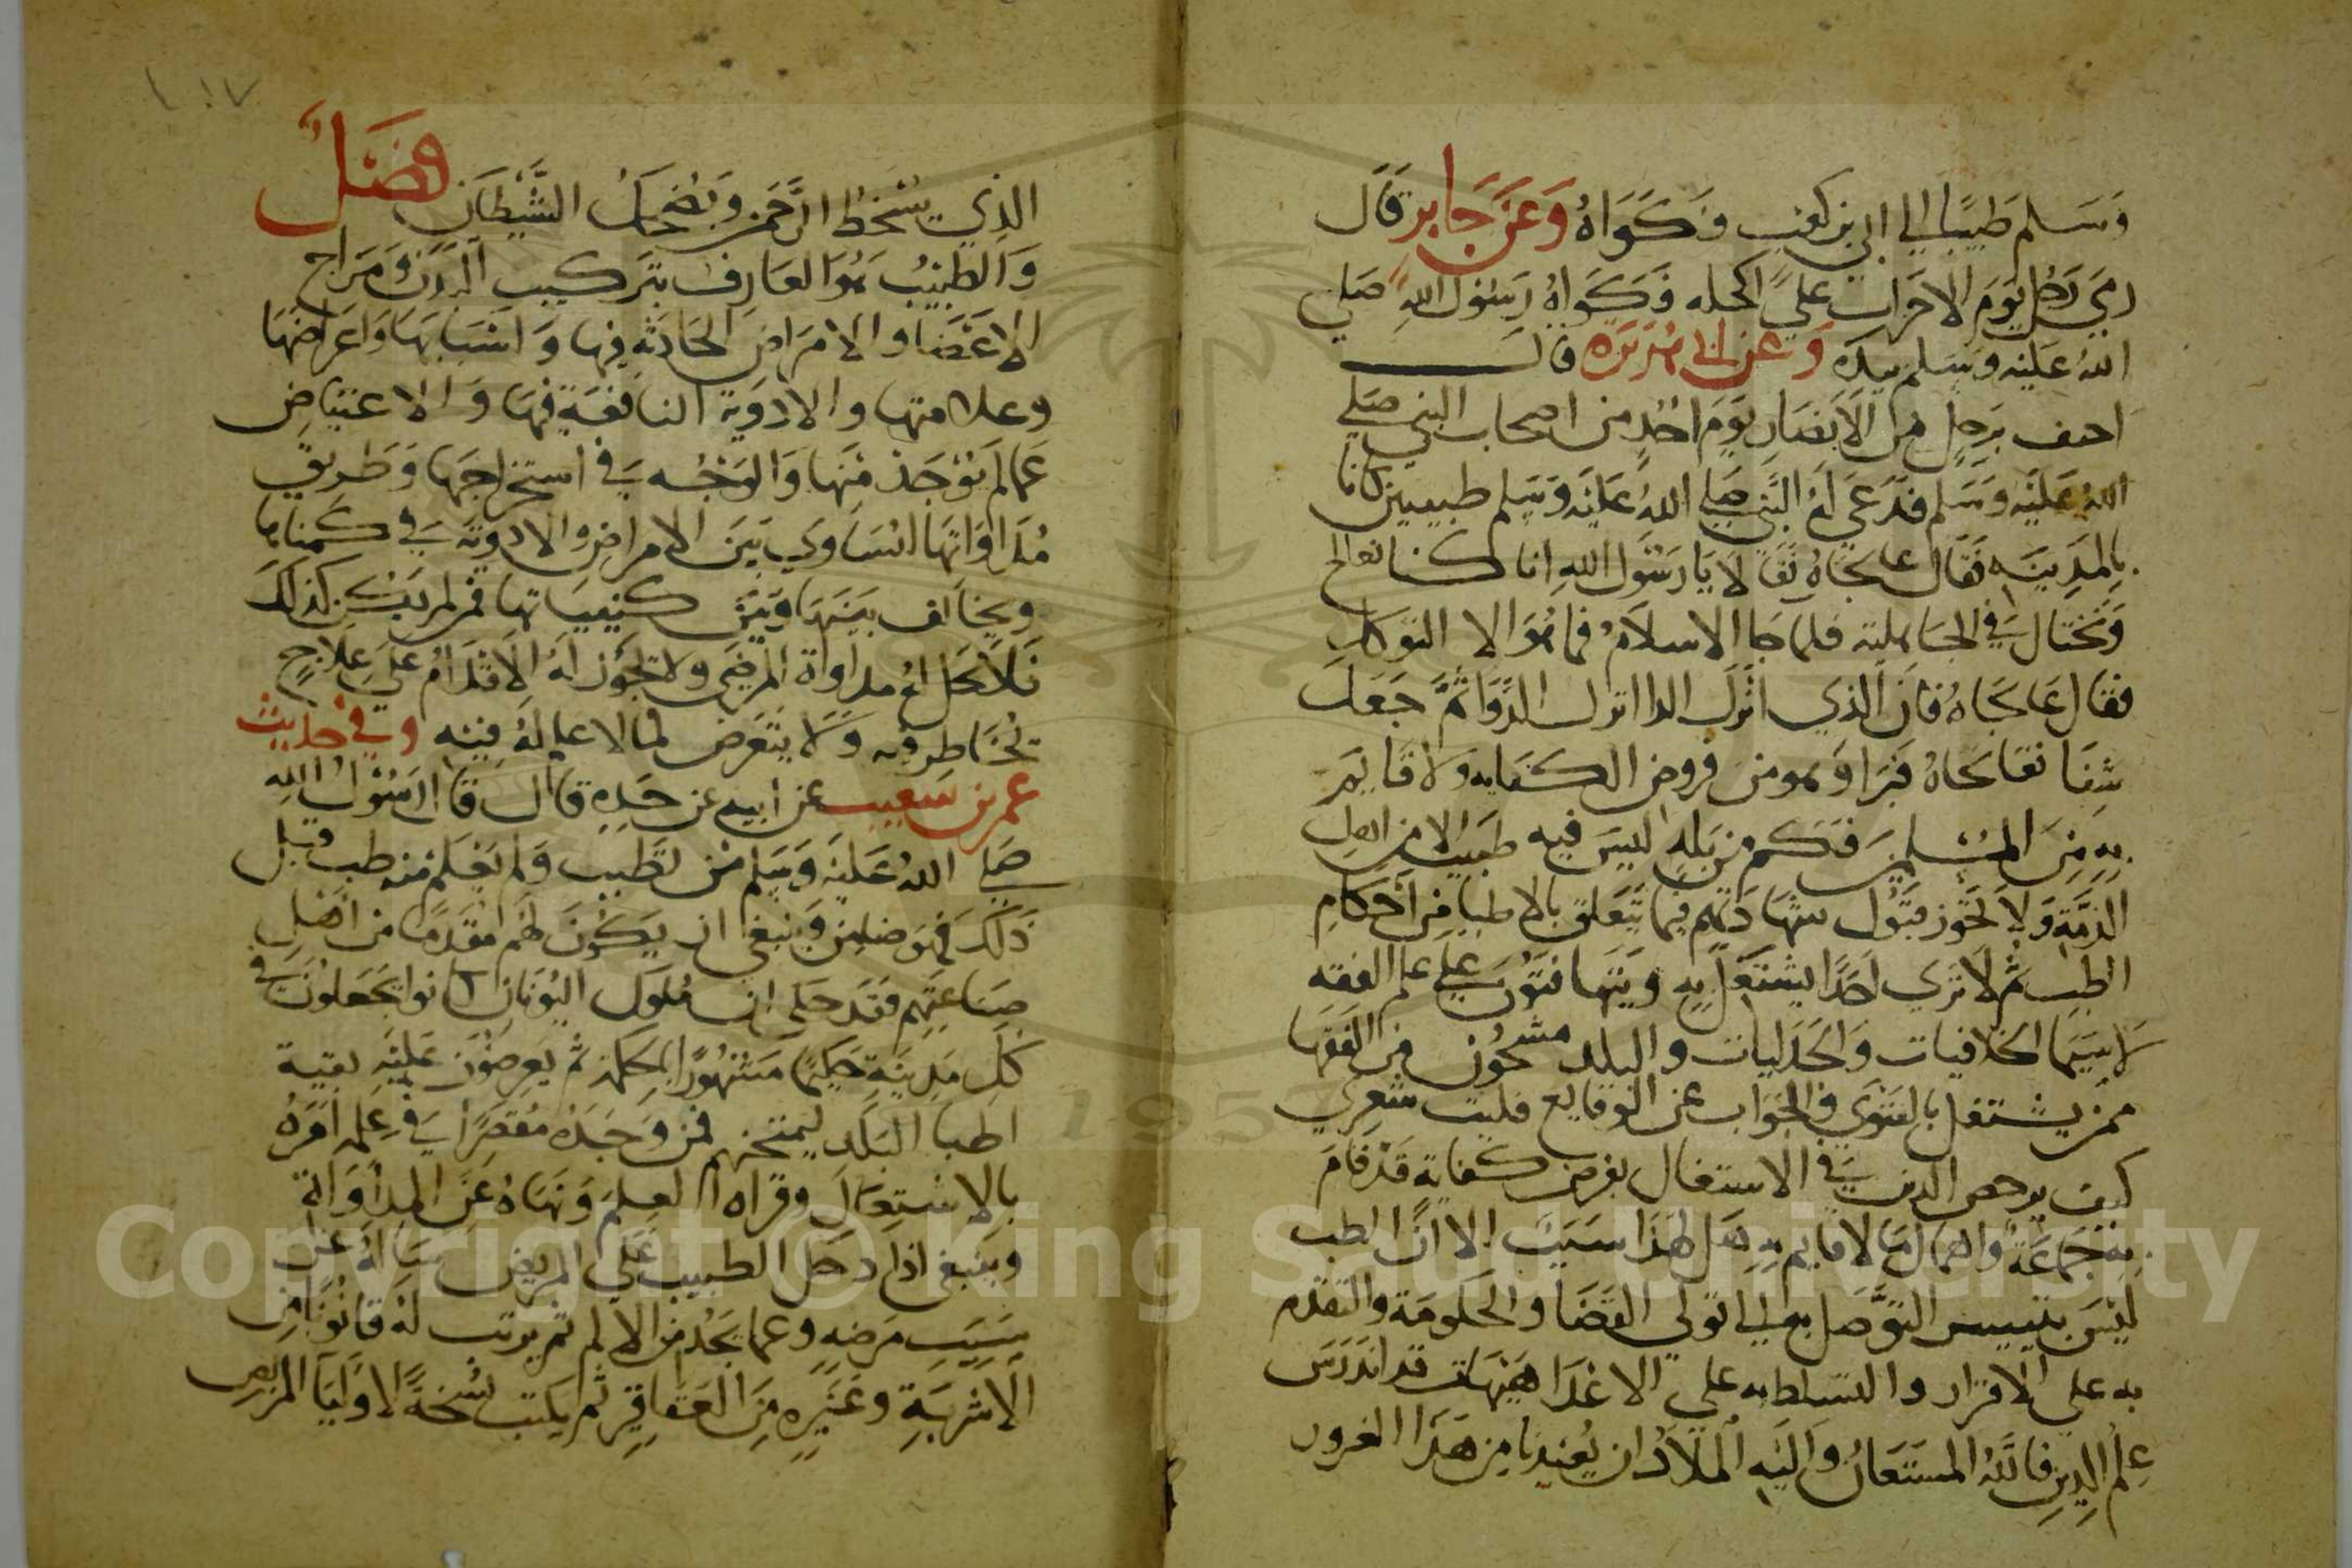 وسلم طبيبا الي ابي بن كعب فكواه وعن جابر قال
رمي رجل يوم الاحزاب علي اكحله فكواه رسول الله صلي
الله عليه وسلم بيده وعن ابي هريرة قال
رجل من الانصار يوم احد من اصحاب النبي صلي
الله عليه وسلم فدعي له النبي صلي الله عليه وسلم طبيبين كانا
بالمدينه فقال عالجاه فقالا يا رسول الله انا كنا نعالج
ونحتال في الجاهلية فلما جا الاسلام فما هو الا التوكل
فقال عالجاه فان الذي انزل الدا انزل الدوا ثم جعل
شفا فعالجاه فبرا وهو من فروض الكفايه ولا قايم
به من المسلمين فكم من بلد ليس فيه طبيب الا من اهل
الذمة ولا تجوز قبول شهادتهم فيما يتعلق بالاطبا من احكام
الطب ثم لا نري احدا يشتغل به ويتهافتون علي علم الفقه
لا سيما الخلافيات والجدليات والبلد مشحون من الفقها
ممن يشتغل بالفتوي والجواب عن الوقايع فليت شعري
كيف يرخص الدين في الاشتغال بفرض كفاية قد قام
به جماعة واهمال ما لا قايم به هل لهذا سبب الا ان الطب
ليس بتيسر التوصل به الي تولي القضا والحكومة والتقدم
به علي الاقران والتسلط به علي الاعدا هيهات قد اندرس
علم الدين فالله المستعان واليه الملاذ ان يعيذنا من هذا الغرور
١٠٧
الذي يسخط الرحمن ويضحك الشيطان فصل
والطبيب هو العارف بتركيب البدن ومزاج
الاعضا والامراض الحادثه فيها واسبابها واعراضها
وعلامتها والادوية النافعة فيها والاعتياض
عما لم يوجد منها والوجه في استخراجها وطريق
مداواتها ليساوي بين الامراض والادوية في كمياتها
ويخالف بينها وبين كيفياتها فمن لم يكن كذلك
فلا يحل له مداواة المرضي ولا تجوز له الاقدام علي علاج
تخاطر فيه ولا يتعرض لما لا علم له فيه وفي حديث
عمر بن شعيب عن ابيه عن جده قال قال رسول الله
صلي الله عليه وسلم من تطبب ولم يعلم منه طب قبل
ذلك فهو ضامن وينبغي ان يكون لهم مقدما من اهل
صناعتهم فقد حكي ان ملوك اليونان كانوا يجعلون في
كل مدينة حكيما مشهورا بالحكمة ثم يعرضون عليه بقية
اطبا البلد ليمتحنهم فمن وجده مقصرا في علمه امره
بالاشتغال وقراه العلم ونهاه عن المداواة
وينبغي اذا دخل الطبيب علي المريض ساله عن
سبب مرضه وعما يجد من الالم ثم يرتب له قانونا من
الاشربة وغيره من العقاقير ثم يكتب نسخة لاوليا المريض
Copyright © King Saud University
1957